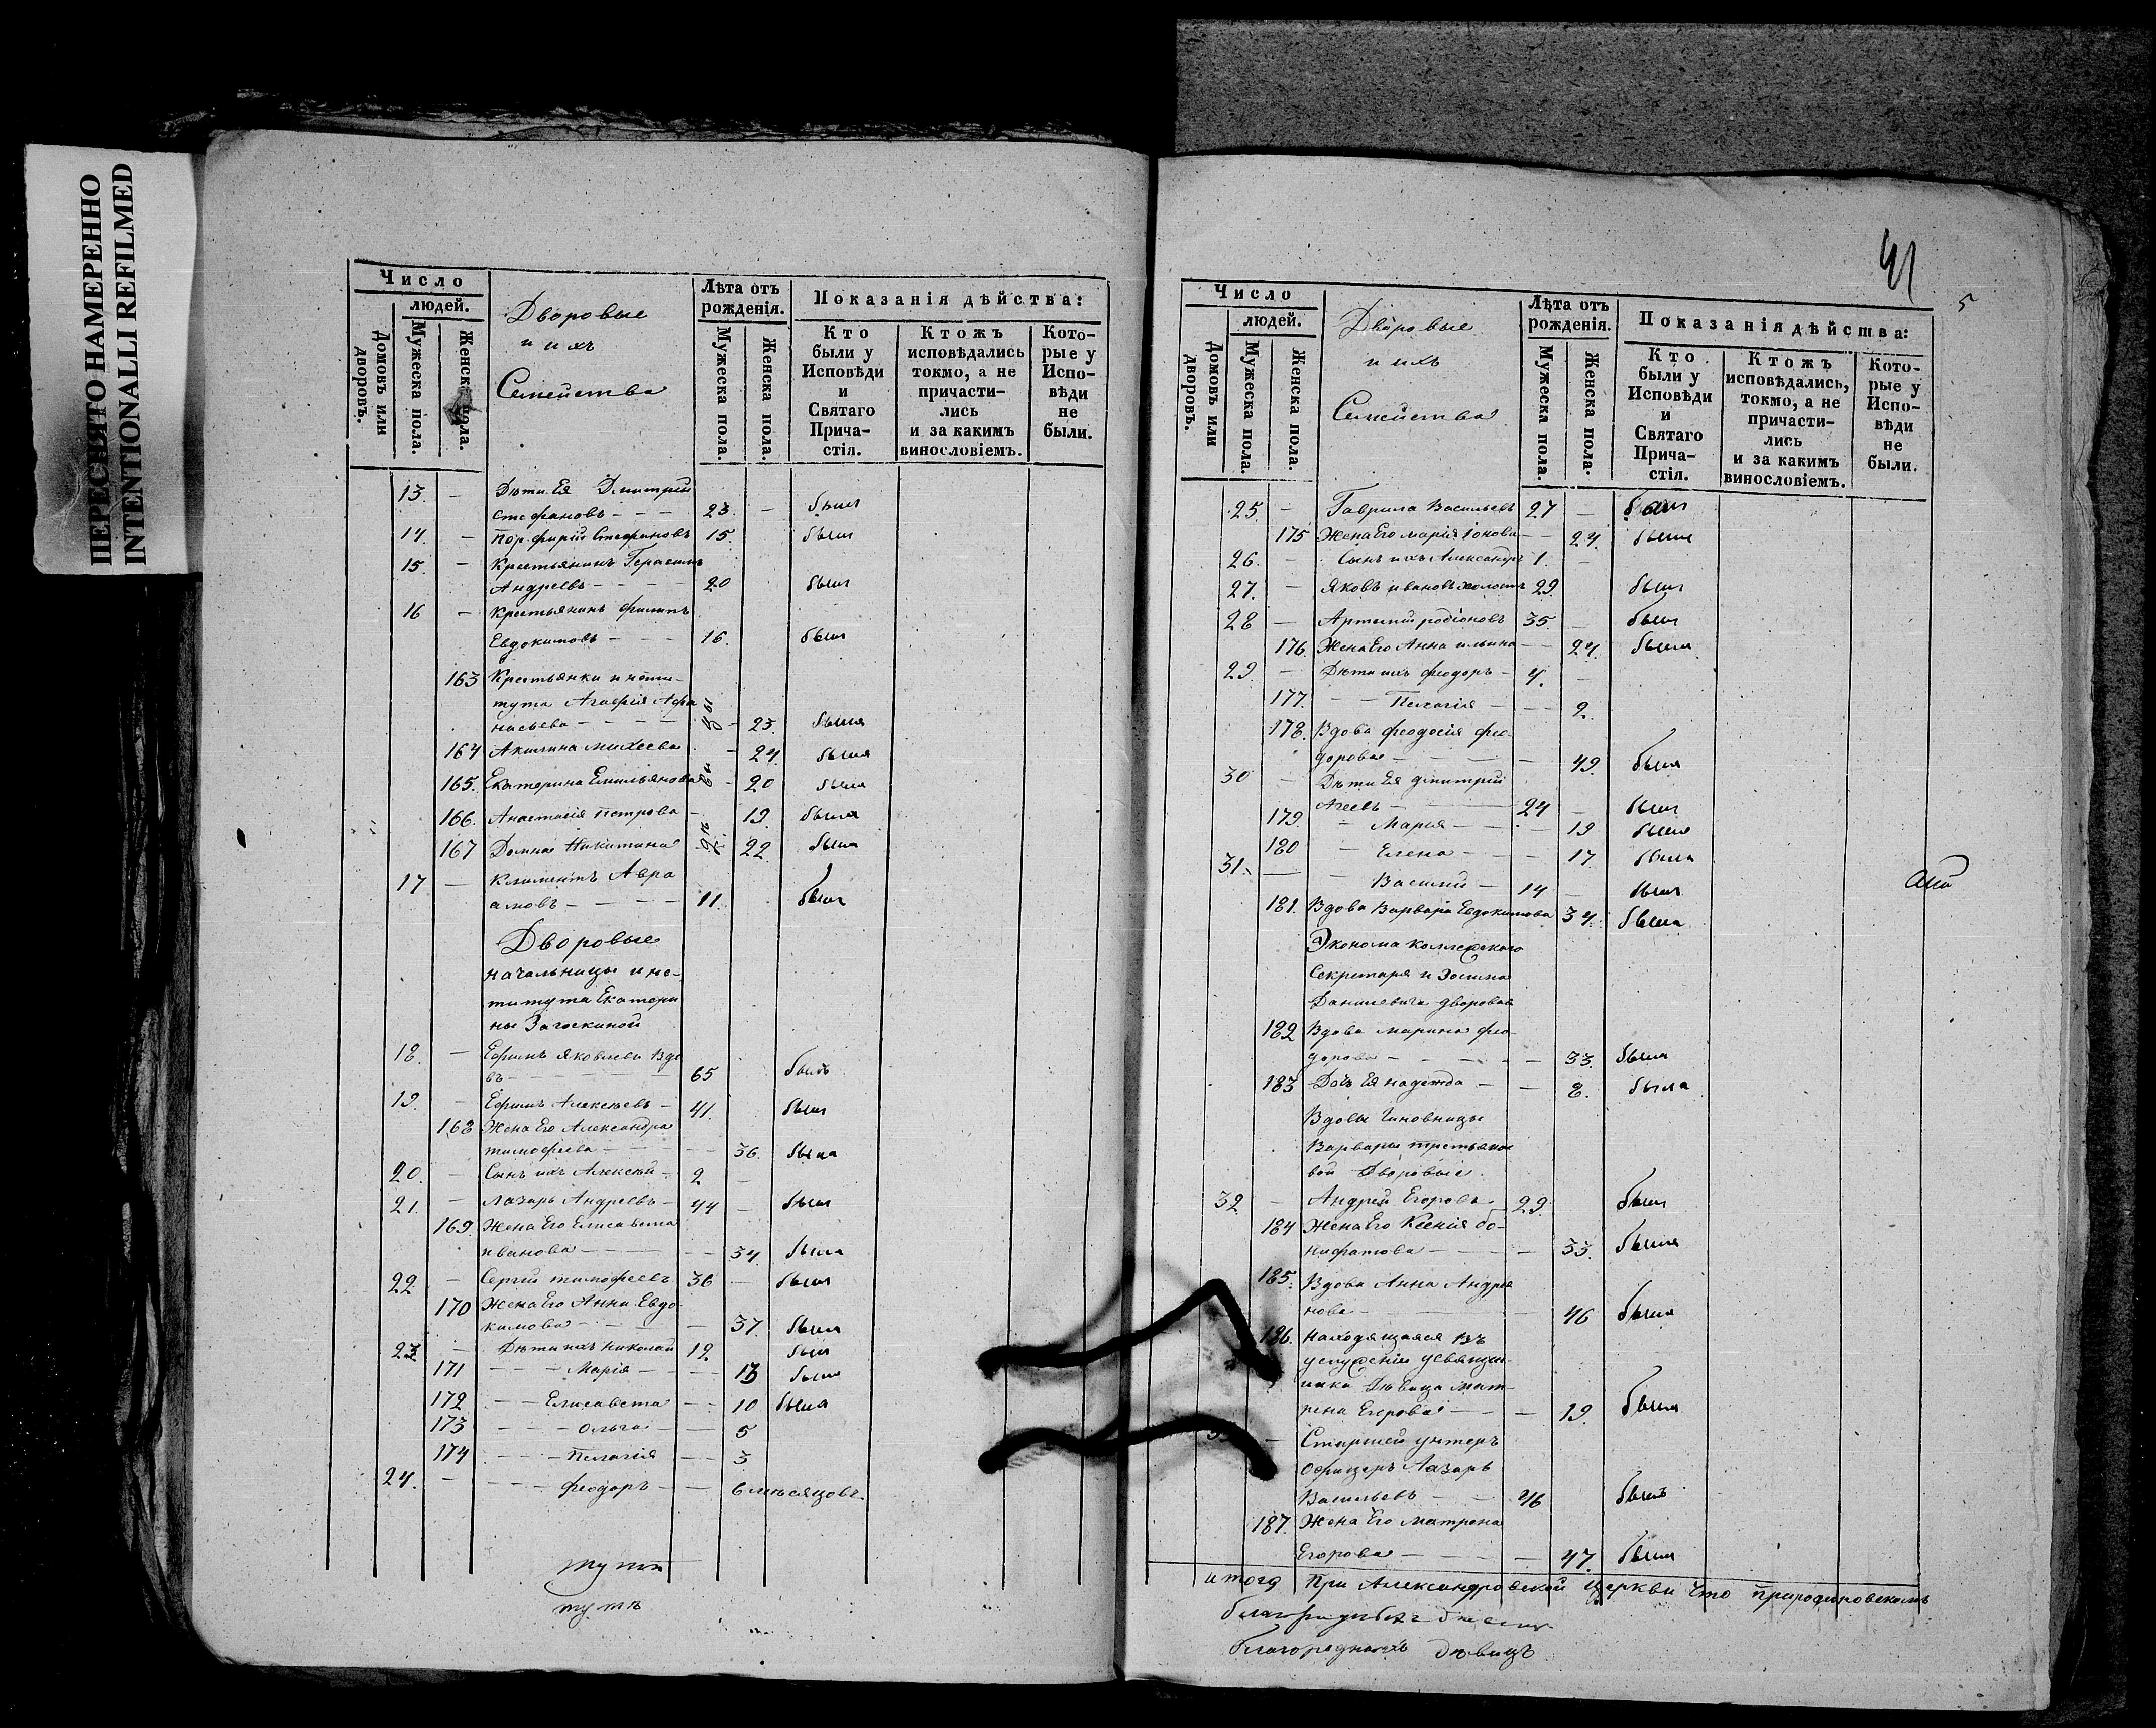 ПЕРЕСНЯТО НАМЕРЕННО
INTENTIONALLI REFILMED
Число
людей.
Домовъ или дворовъ.
Мужеска пола.
Женска пола.
Дворовые
и ихъ
Семейства
Лѣта отъ рожденія.
Мужеска пола.
Женска пола.
Показанія дѣйства:
Кто были у Исповѣди и Святаго Прича-стія.
Ктожъ исповѣдались токмо, а не причасти-лись и за какимъ винословіемъ.
Кото-рые у Испо-вѣди не были.
13. - Дѣти Ея Дмитрій
Стефановъ - - - 23. - былъ
14 - Порфирій Стефановъ 15. былъ
15. - Крестьянинъ Герасимъ
Андреевъ - - - - 20 былъ
16 - Крестьянинъ Филипъ
Евдокимовъ - - - 16. былъ
163 Крестьянки инсти-
тута Агафія Афа
насьева - - - - 23. была
164 Акилина Михеева - 24. была
165. Екатерина Емильянова - 20 была
166. Анастасія Петрова - 19. была
167 Домна Никитина 22. была
17 - Климентъ Авра
амовъ - - - - 11. былъ
Дворовые
начальницы инс-
титута Екатери
ны Загоскиной
18. - Ефимъ Яковлевъ Вдо
въ - - - 65 былъ
19. - Ефимъ Алексѣевъ - 41. былъ
168 Жена Его Александра
Тимофеева - - - 36. была
20. - Сынъ ихъ Алексѣй - 2 -
21. - Лазарь Андреевъ - 44 - былъ
169. Жена Его Елисавета
Иванова - - - - - 34. была
22. - Сергій Тимофеевъ 36 - былъ
170 Жена Его Анна Евдо
кимова - - - - 37. была
23 - Дѣти ихъ Николай 12. былъ
171 - - Марія - - - 13 была
172 - - Елисавета - - 10 была
173 - - - Ольга - - 5
174 - - - Пелагія - - 3
24. - - - - Феодоръ - - 6 мѣсяцовъ.
тутъ
тутъ
41
5
Число
людей.
Домовъ или дворовъ.
Мужеска пола.
Женска пола.
Дворовые
и ихъ
Семейства
Лѣта отъ рожденія.
Мужеска пола.
Женска пола.
Показанія дѣйства:
Кто были у Исповѣди и Святаго Прича-стія.
Ктожъ исповѣдались, токмо, а не причасти-лись и за какимъ винословіемъ.
Кото-рые у Испо-вѣди не были.
25. - Гаврила Васильевъ 27 - былъ
175 Жена Его Марія Іонова - - 24. была
26. - Сынъ ихъ Александръ 1. -
27. - Яковъ Ивановъ холостъ 29. былъ
28 - Артемій Родіоновъ 35. - былъ
176. Жена Его Анна Ильина - - 24. была
29. - Дѣти ихъ Феодоръ - 4. -
177. - - Пелагія - - - 2.
178. Вдова Феодосія Фео
дорова - - - - - 49. была
30 - Дѣти Ея Димитрій
Агеевъ - - - 24 - былъ
179. - Марія - - - - 19 была
180 - Елена - - - 17. была
31. - - Василій - 14 - былъ
181. Вдова Варвара Евдокимова 34. была
Эконома Коллежскаго
Секретаря и Зосима
Данилевича дворовая
182 Вдова Марина Фео
дорова - - - - - 33. была
183 Дочь Ея Надежда - - 8. была
Вдовы Чиновницы
Варвары Третьяко
вой Дворовые.
32 - Андрей Егоровъ. 29. былъ
184 Жена Его Ксенія Бо-
нифатова - - - - 33. была
185. Вдова Анна Андреа
нова - - - - 46 была
186. Находящаяся въ
услуженіи у священ-
ника Дѣвица Мат-
рена Егорова - - - 19. была
- Старшей унтеръ
Офицеръ Лазарь
Васильевъ - - 46 былъ
187. Жена Его Матрена
Егорова - - - - 47. была
итого при Александровской Церкви что при
благородныхъ дѣвицъ